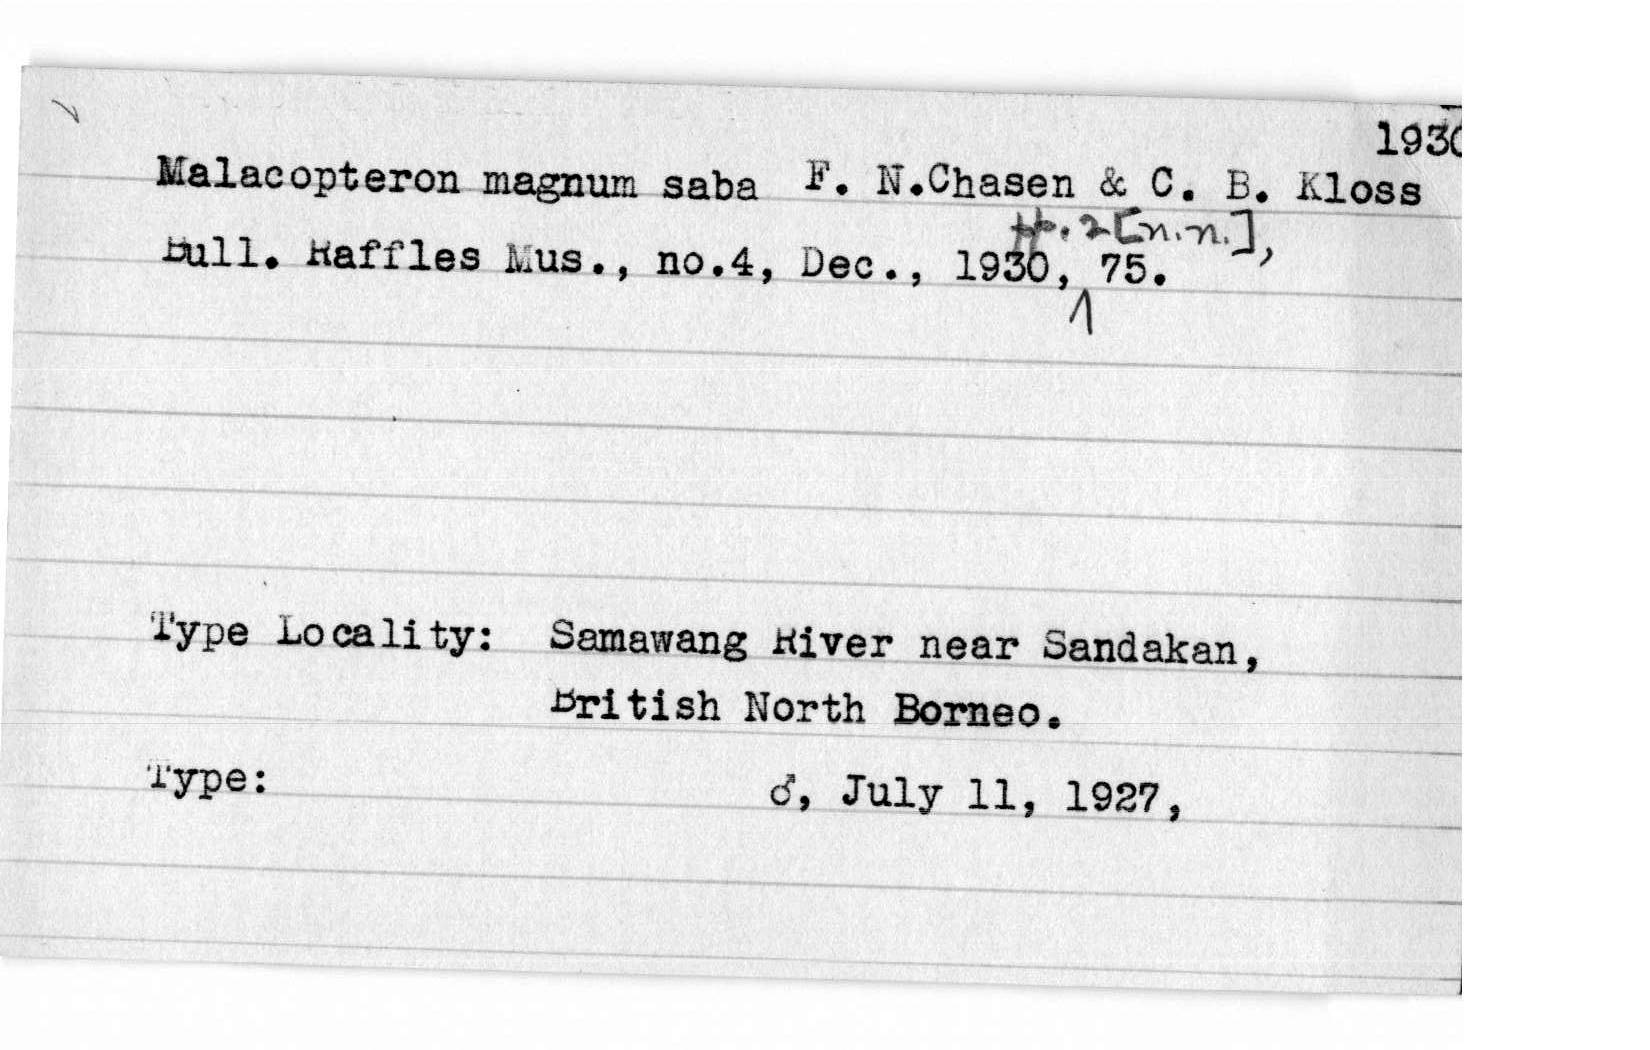 1930
Malacopteron magnum saba F. N.Chasen & C. B. Kloss
pp. 2 [n.n.],
Bull. Raffles Mus., no.4, Dec., 1930, 75.
Type Locality: Samawang River near Sandakan,
British North Borneo.
Type: ♂, July 11, 1927,